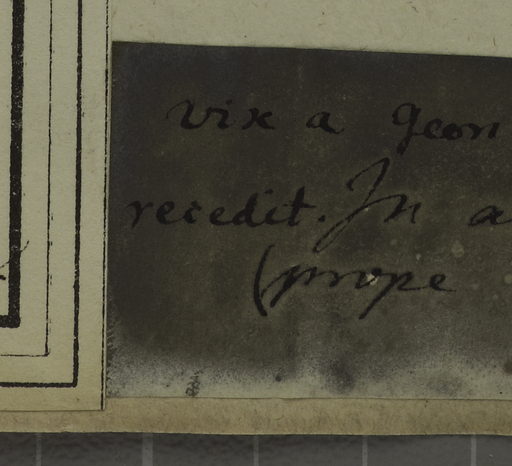 vix a geon
recedit. In a
(prope